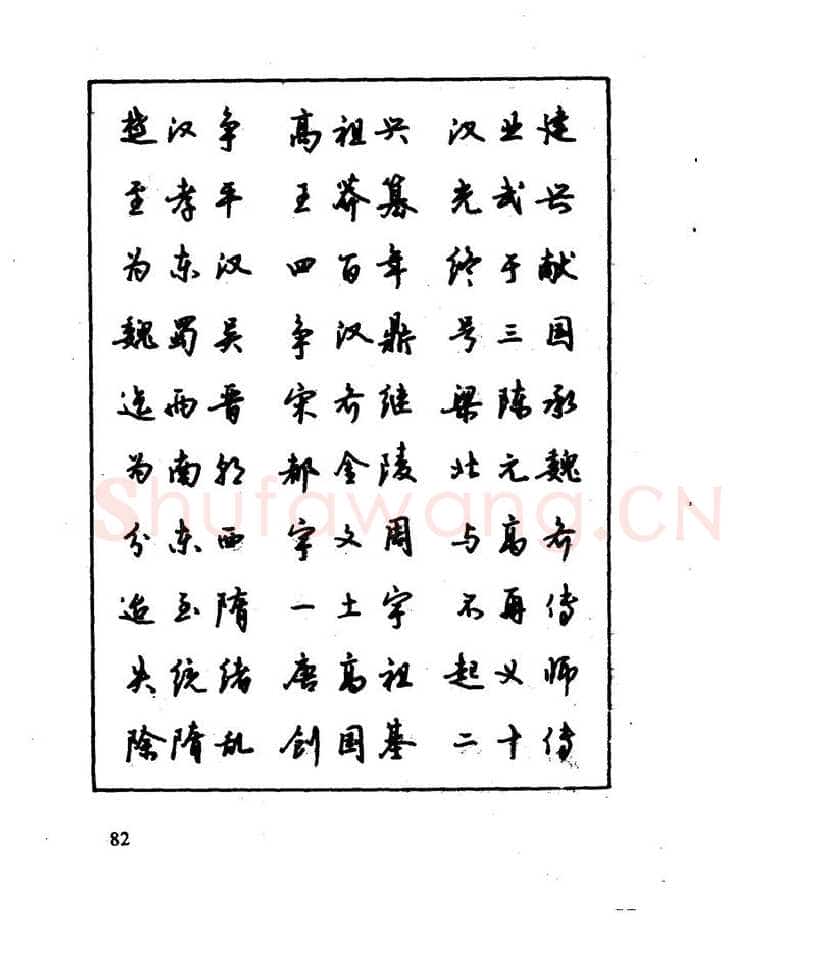 楚汉争 高祖兴 汉业建
至孝平 王莽篡 光武兴
为东汉 四百年 终于献
魏蜀吴 争汉鼎 号三国
迄两晋 宋齐继 梁陈承
为南朝 都金陵 北元魏
分东西 宇文周 与高齐
迨至隋 一土宇 不再传
失统绪 唐高祖 起义师
除隋乱 创国基 二十传
82
Shufawang.CN